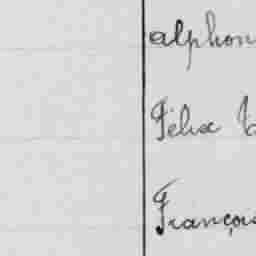 alphon
Félix
Françoi